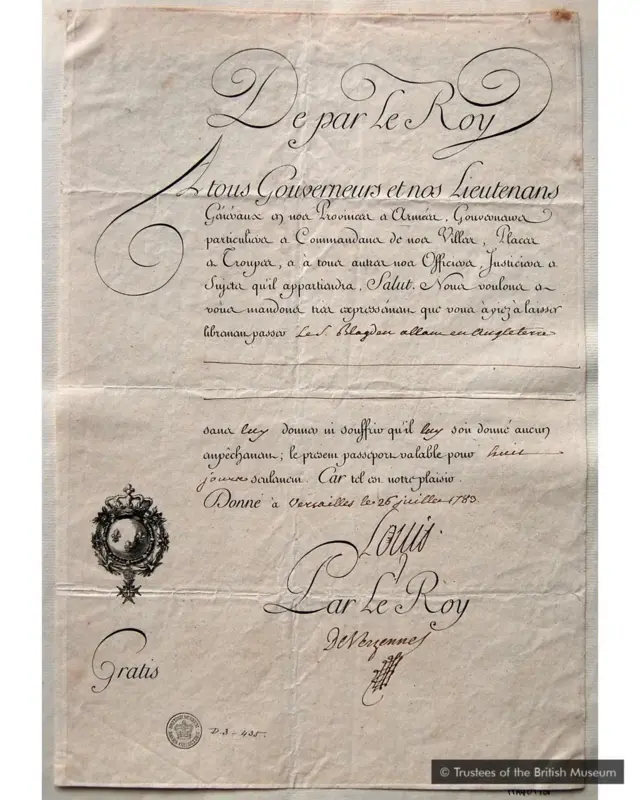 De par Le Roy
A tous Gouverneurs et nos Lieutenans
Généraux en nos Provinces et Armées, Gouverneurs
particuliers et Commandans de nos Villes, Places
et Troupes, et à tous autres nos Officiers Justiciers et
Sujets qu'il appartiendra, Salut. Nous voulons et
vous mandons très expressément que vous ayiez à laisser
librement passer Le S. Blagden allant en Angleterre
sans luy donner ni souffrir qu'il luy soit donné aucun
empêchement; le présent passeport valable pour huit
jours seulement. Car tel est notre plaisir.
Donné à Versailles le 26 juillet 1783
Louis.
Par Le Roy
De Vergennes
Gratis
D.3-435.
© Trustees of the British Museum